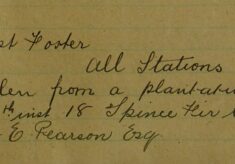 st Foster
All Stations
len from a plantati
th inst 18 Spince Fir
E Pearson Esq